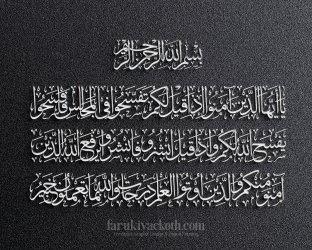 بسم الله الرحمن الرحيم
يا أيها الذين آمنوا إذا قيل لكم تفسحوا في المجالس فافسحوا
يفسح الله لكم وإذا قيل انشزوا فانشزوا يرفع الله الذين
آمنوا منكم والذين أوتوا العلم درجات والله بما تعملون خبير
farukivackoth.com